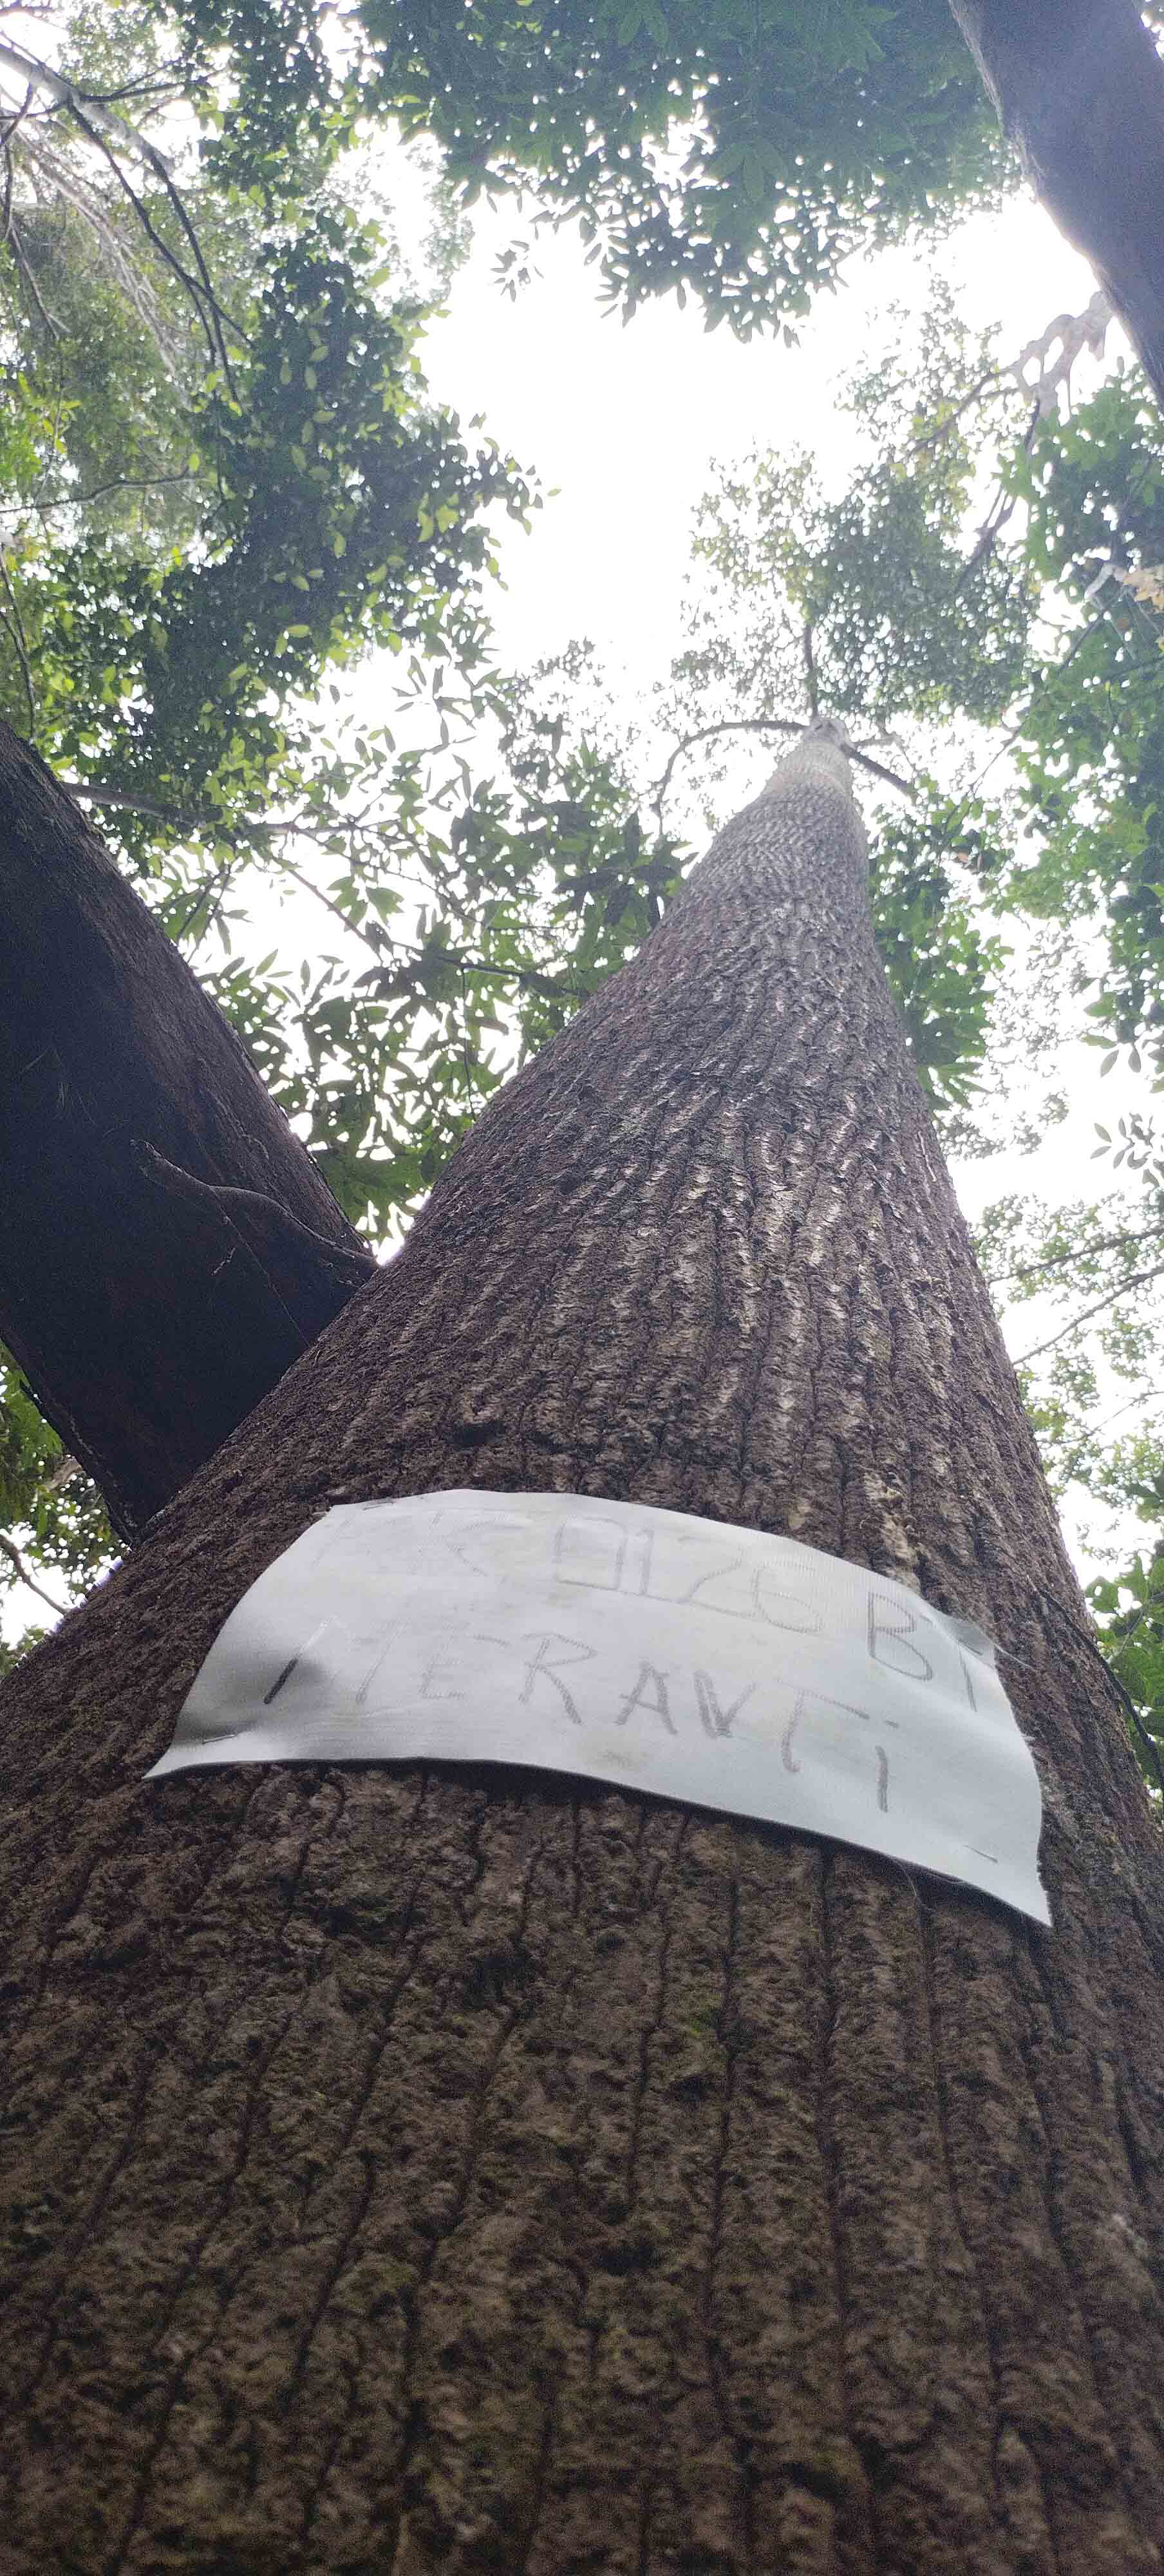 0126 BT
MERANTi